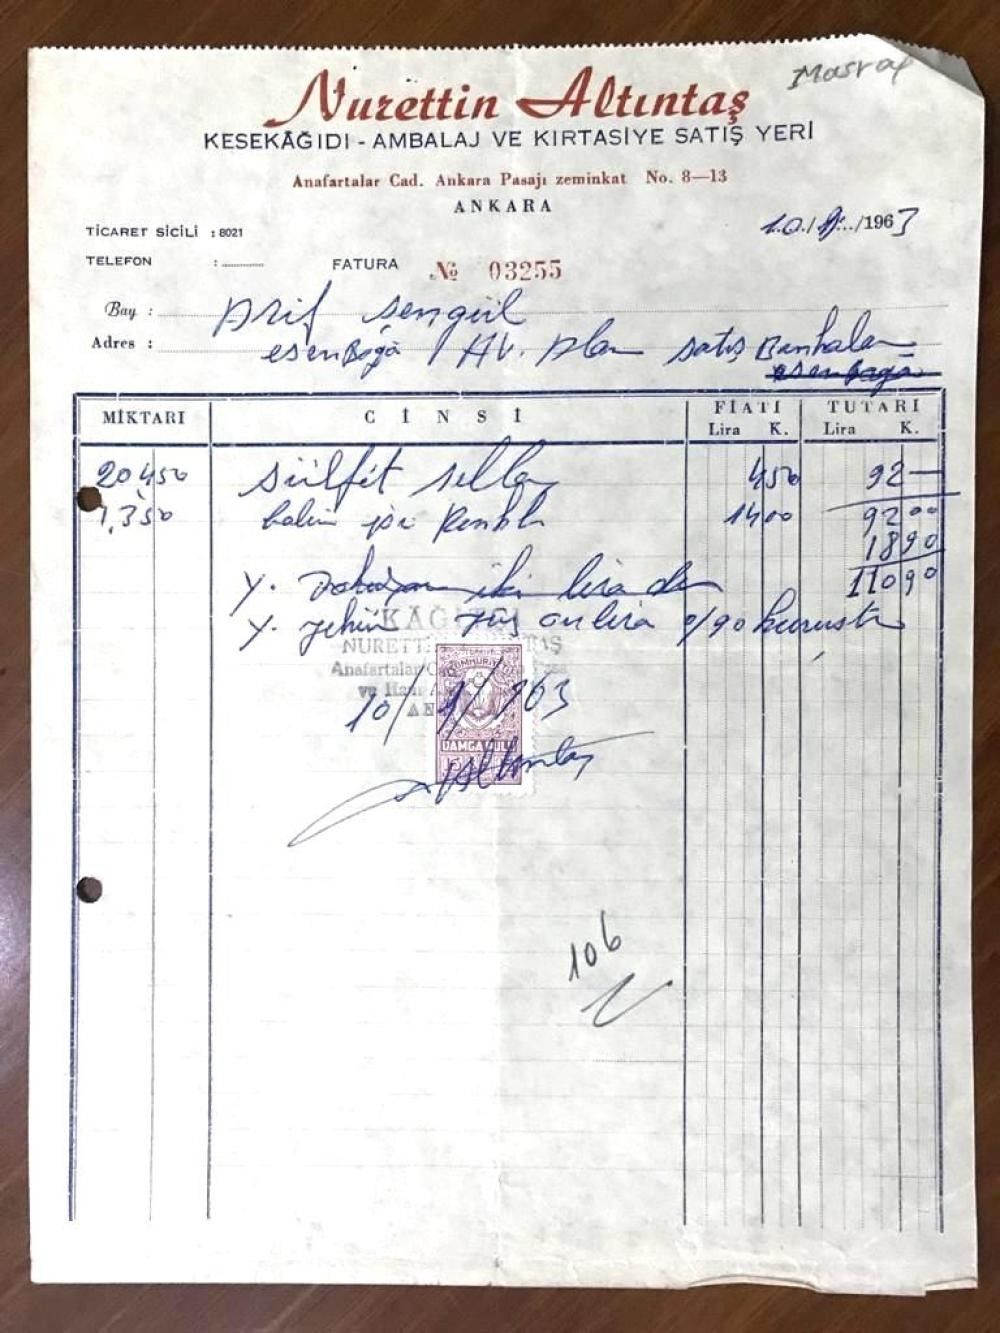 Masraf
Nurettin Altıntaş
KESEKÂĞIDI - AMBALAJ VE KIRTASİYE SATIŞ YERİ
Anafartalar Cad. Ankara Pasajı zeminkat No. 8—13
ANKARA
10./9../1963
TİCARET SİCİLİ : 8021
TELEFON :
FATURA № 03255
Bay : Arif Şengül
Adres : esenBoğa Av. Alan satış
esenboğa
MİKTARI CİNSİ FİATI TUTARI
Lira K. Lira K.
20 450 sülfit 450 92 —
1,350 1400 92 00
18 90
110 90
Y. iki lirada
Y. Yekün Yüz onlira 9/90 kuruştu
KAĞITÇI
NURETTİN ALTINTAŞ
Anafartalar
10/9/963
TÜRKİYE CUMHURİYETİ
DAMGA PULU
Altıntaş
106